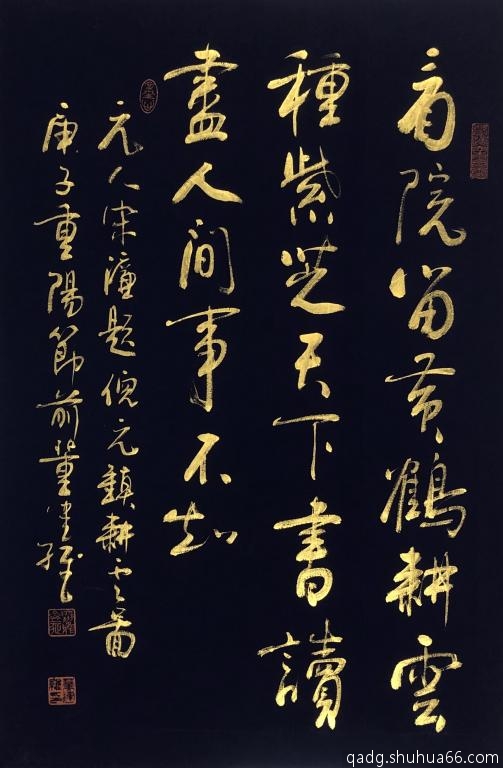 看院留黄鶴耕雲
種紫芝天下書讀
盡人間事不知
元人宋濂題倪元鎮耕雲圖
庚子重陽節前董
qadg.shuhua66.com